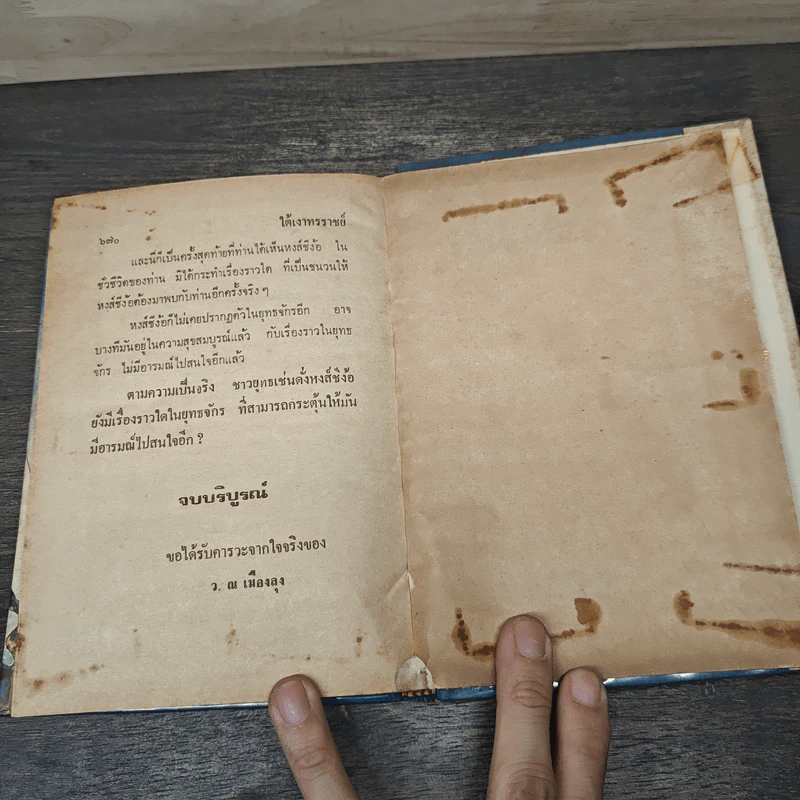 ใต้เงาทรราชย์
๖๗๐
และนี่ก็เป็นครั้งสุดท้ายที่ท่านได้เห็นหงส์ซิงอ้อ ใน
ชั่วชีวิตของท่าน มิได้กระทำเรื่องราวใด ที่เป็นชนวนให้
หงส์ซิงอ้อต้องมาพบกับท่านอีกครั้งจริงๆ
หงส์ซิงอ้อก็ไม่เคยปรากฏตัวในยุทธจักรอีก อาจ
บางทีมันอยู่ในความสุขสมบูรณ์แล้ว กับเรื่องราวในยุทธ
จักร ไม่มีอารมณ์ไปสนใจอีกแล้ว
ตามความเป็นจริง ชาวยุทธเช่นดั่งหงส์ซิงอ้อ
ยังมีเรื่องราวใดในยุทธจักร ที่สามารถกระตุ้นให้มัน
มีอารมณ์ไปสนใจอีก ?
จบบริบูรณ์
ขอได้รับคารวะจากใจจริงของ
ว. ณ เมืองลุง